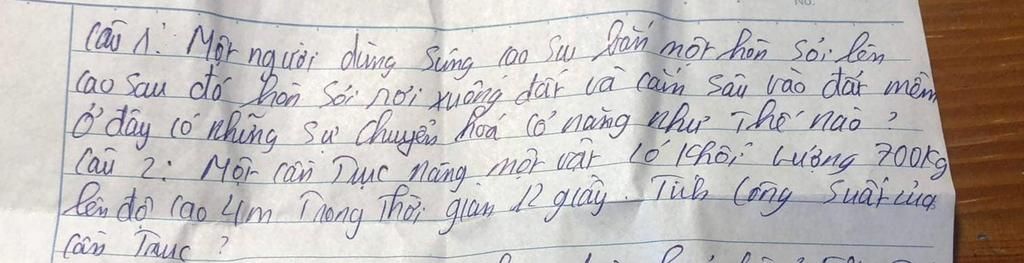 Câu 1: Một người dùng súng cao su bắn một hòn sỏi lên
cao sau đó hòn sỏi rơi xuống đất và cắm sâu vào đất mềm
Ở đây có những sự chuyển hoá cơ năng như thế nào?
Câu 2: Một cần trục nâng một vật có khối lượng 700kg
lên độ cao 4m trong thời gian 12 giây. Tính công suất của
cần trục?